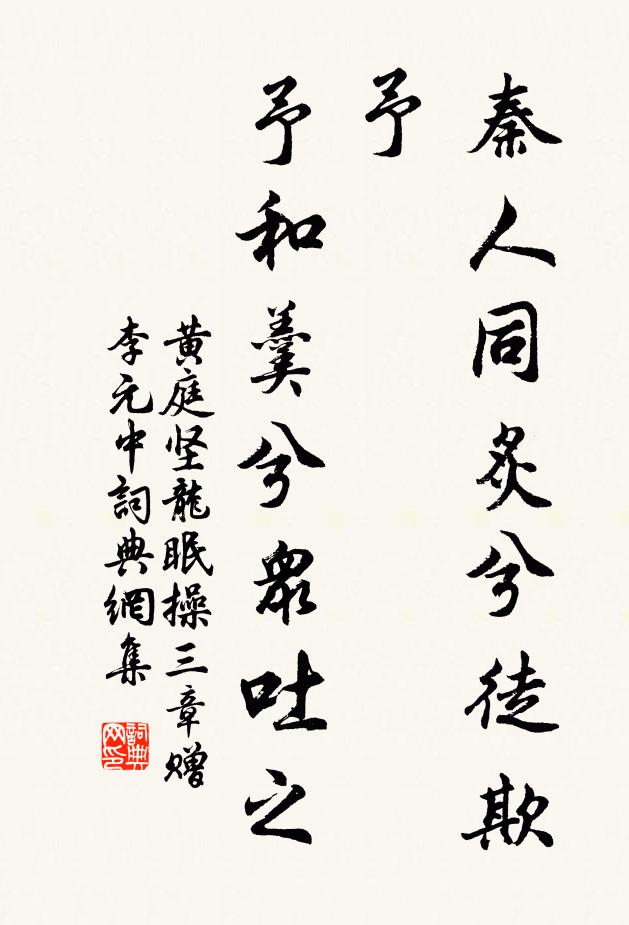 秦人同炙兮徒欺
予
予和羹兮眾吐之
黄庭坚龍眠操三章赠
李元中詞典網集
詞典网印